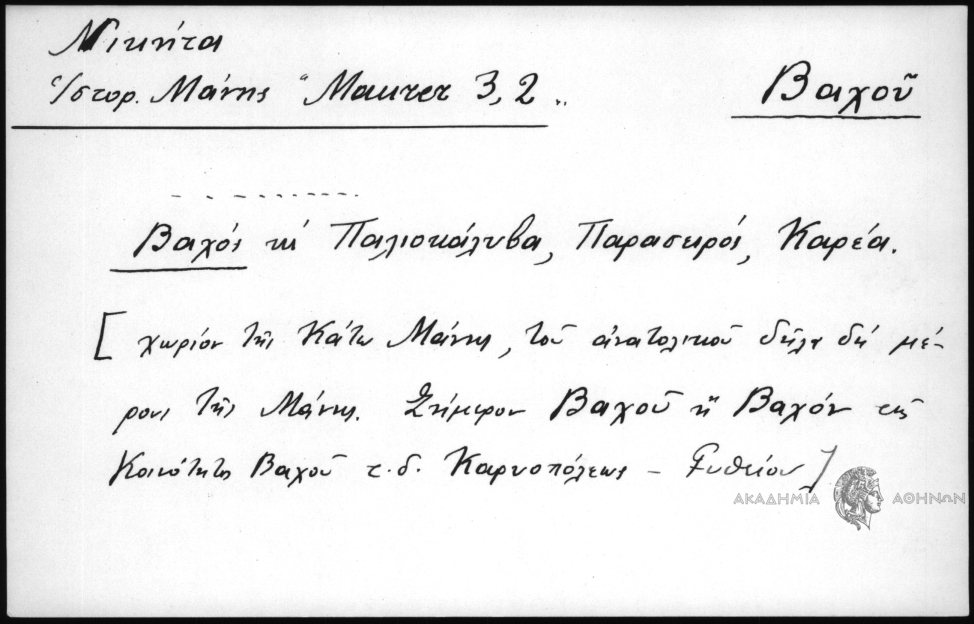 Νικήτα
Ἱστορ. Μάνης "Maurer 3,2„
Βαχοῦ
Βαχός κι Παλιοκάλυβα, Παρασειρός, Καρέα.
[χωρίον τῆς Κάτω Μάνης, τοῦ ἀνατολικοῦ δῆλα δή μέ-
ρους τῆς Μάνης. Σήμερον Βαχοῦ ἤ Βαχόν τῆς
Κοινότητος Βαχοῦ τ. δ. Καρυοπόλεως - Γυθείου]
ΑΚΑΔΗΜΙΑ ΑΘΗΝΩΝ